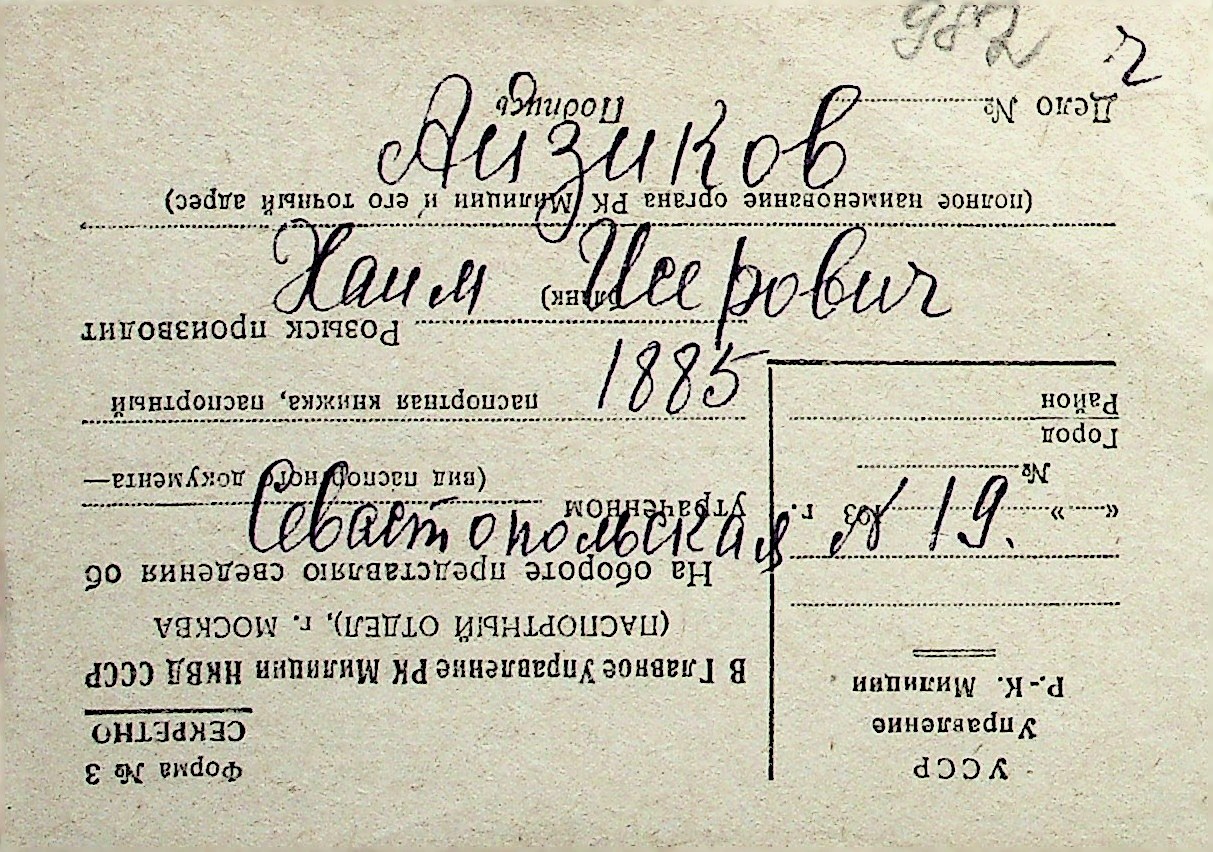 982
Аизиков
Хаим Исерович
1885
Севастопольская № 19.
УССР
Управление
Р.-К. Милиции
« » 193 г.
№
Город
Район
Форма № 3
СЕКРЕТНО
В Главное Управление РК Милиции НКВД СССР
(ПАСПОРТНЫЙ ОТДЕЛ), г. МОСКВА
На обороте представляю сведения об
утраченном
(вид паспортного документа—
паспортная книжка, паспортный
бланк)
Розыск производит
(полное наименование органа РК Милиции и его точный адрес)
Дело №
Подпись